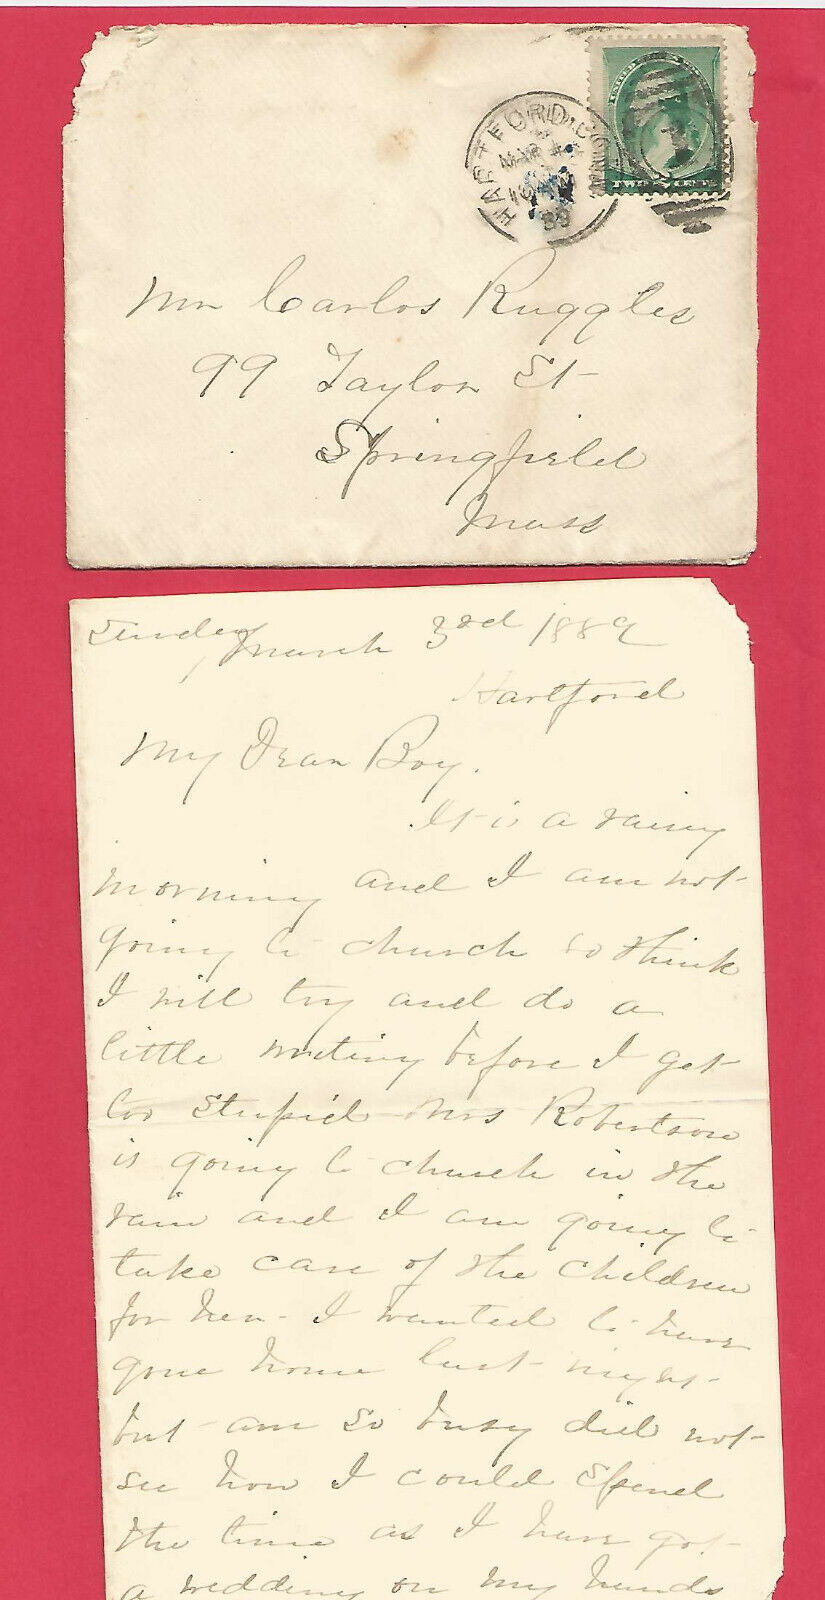 HARTFORD CONN.
MAR 4
89
TWO CENTS
Mr Carlos Ruggles
99 Taylor St
Springfield
Mass
Sunday March 3rd 1889
Hartford
My Dear Boy.
It is a rainy
morning and I am not
going to church so think
I will try and do a
little writing before I get
too stupid Mrs Robertson
is going to church in the
rain and I am going to
take care of the children
for her - I wanted to have
gone home last night
but am so busy did not
see how I could spend
the time as I have got
a wedding on my hands